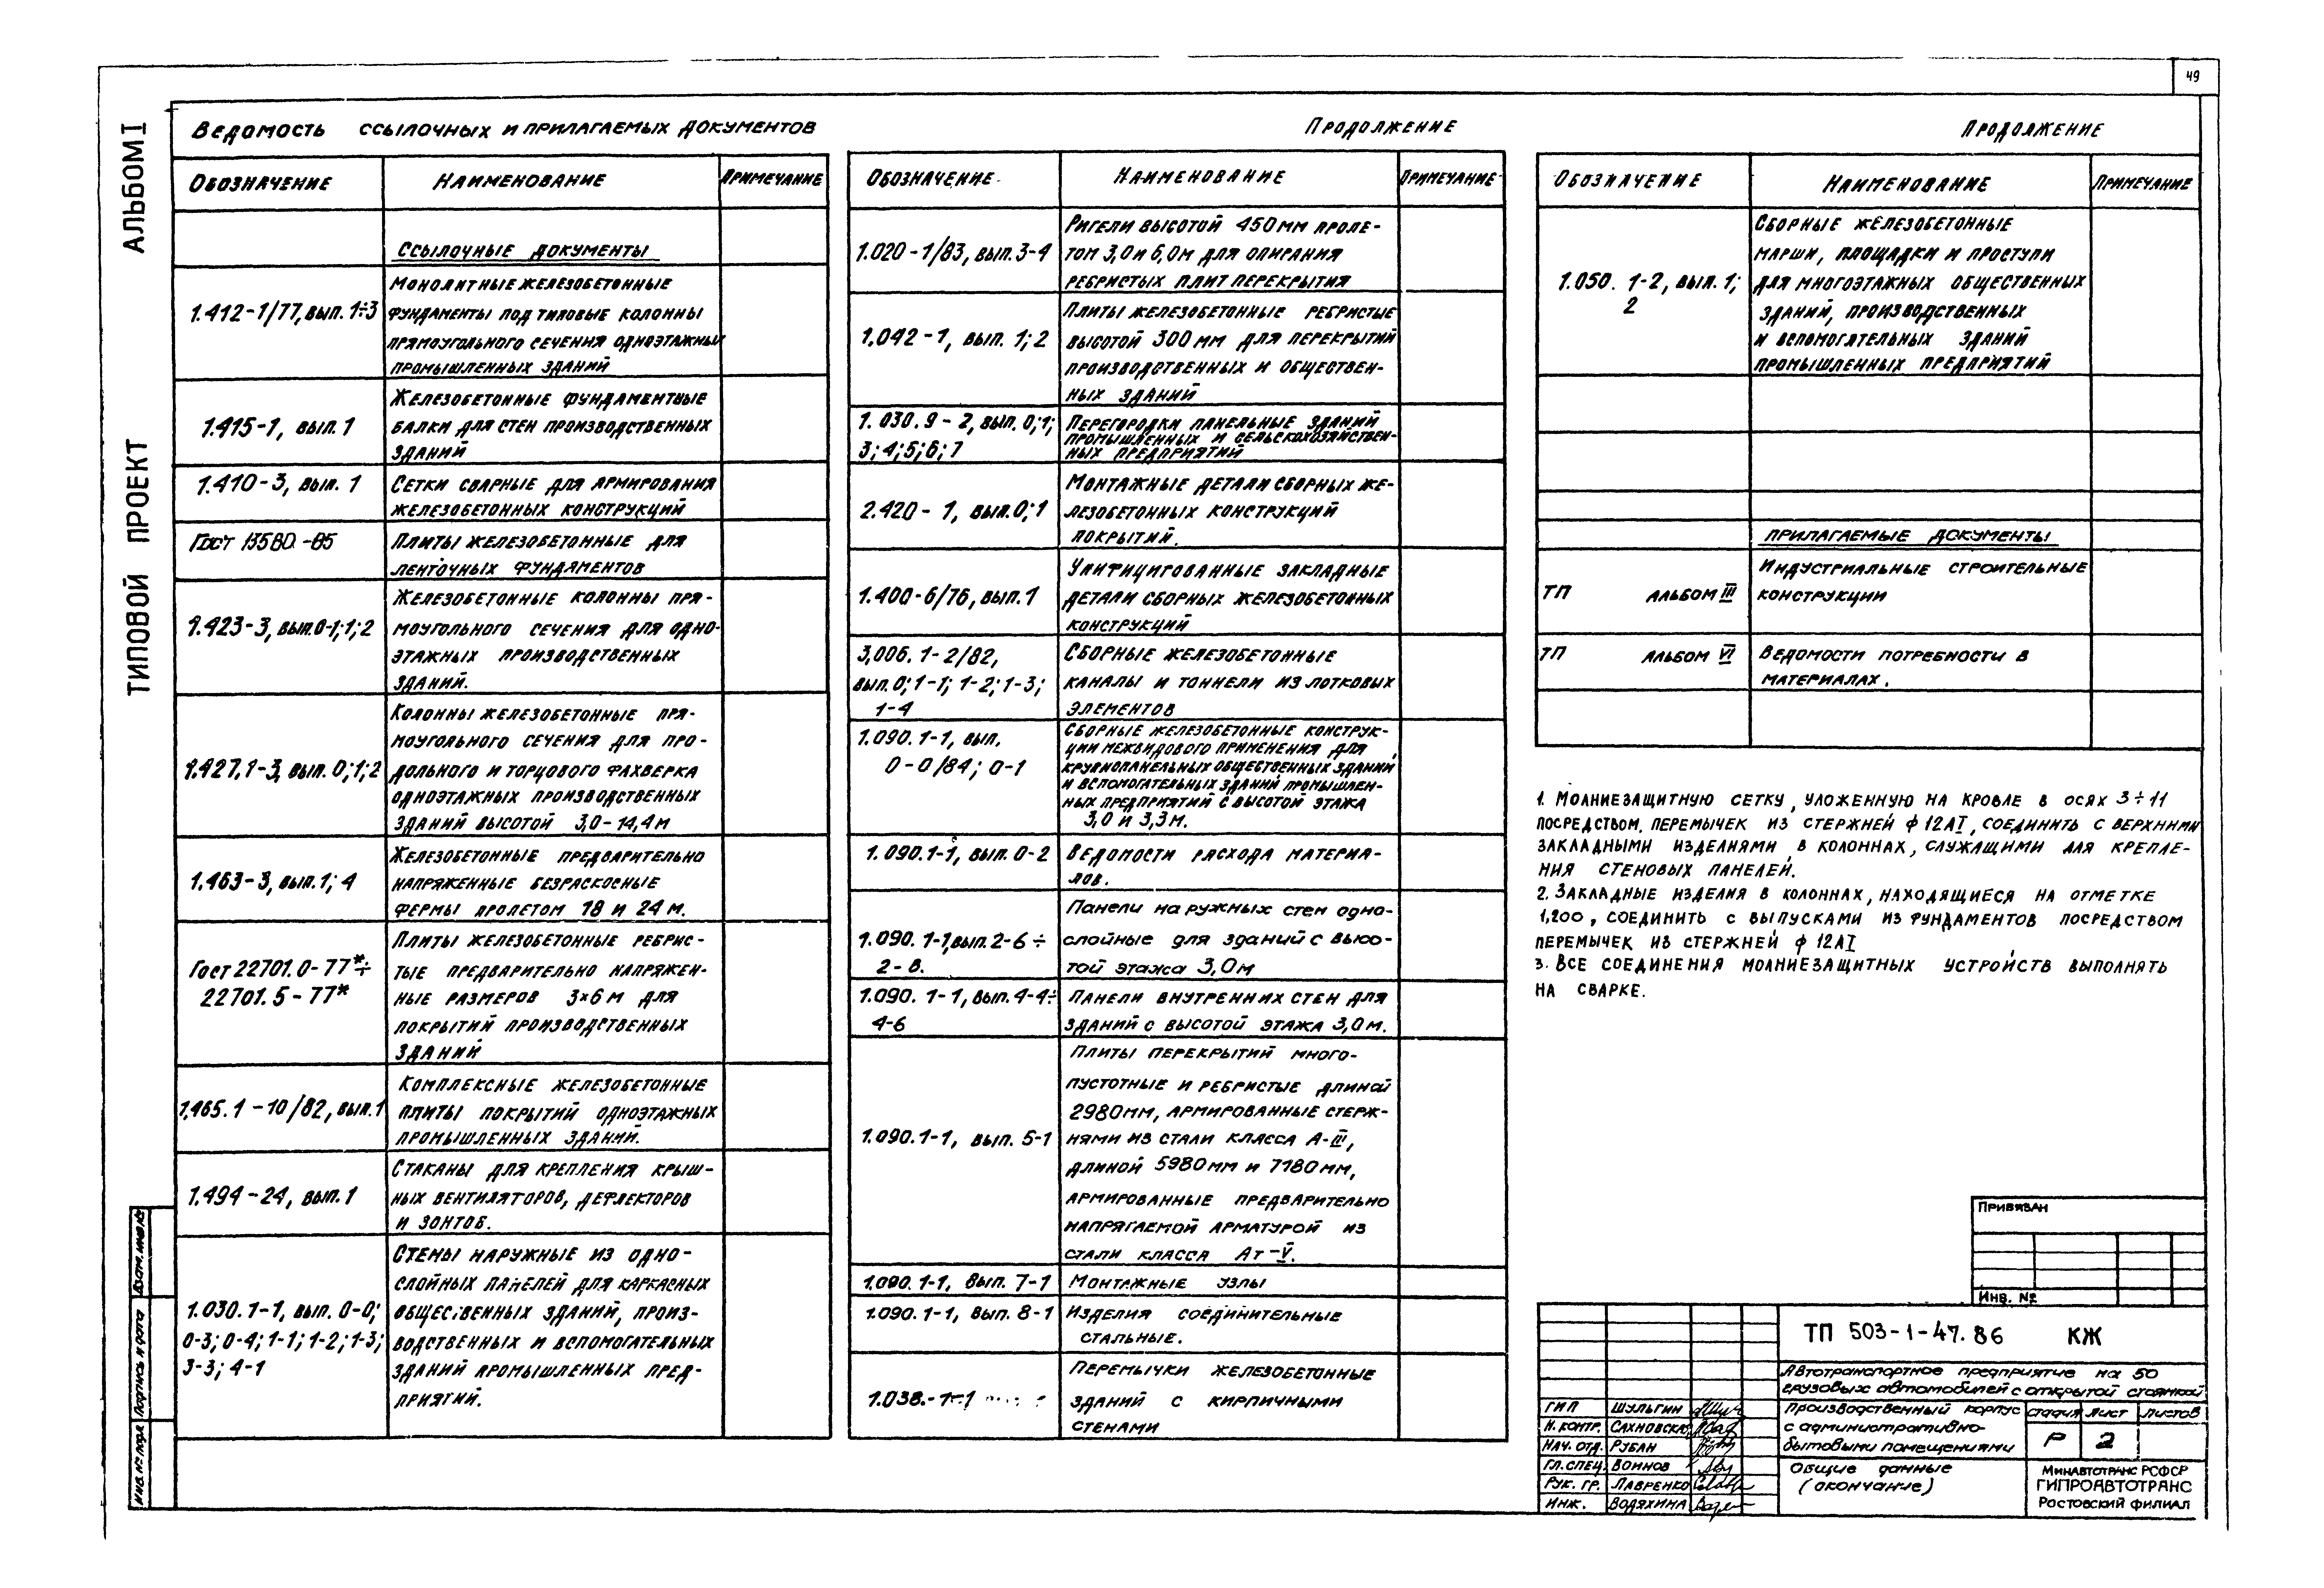 49
АЛЬБОМ I
ТИПОВОЙ ПРОЕКТ
Ведомость ссылочных и прилагаемых документов
Обозначение
Наименование
Примечание
Ссылочные документы
1.412-1/77, вып. 1÷3
Монолитные железобетонные
фундаменты под типовые колонны
прямоугольного сечения одноэтажных
промышленных зданий
1.415-1, вып. 1
Железобетонные фундаментные
балки для стен производственных
зданий
1.410-3, вып. 1
Сетки сварные для армирования
железобетонных конструкций
Гост 13580.-85
Плиты железобетонные для
ленточных фундаментов
1.423-3, вып. 0-1; 1; 2
Железобетонные колонны пря-
моугольного сечения для одно-
этажных производственных
зданий.
1.427.1-3, вып. 0; 1; 2
Колонны железобетонные пря-
моугольного сечения для про-
дольного и торцового фахверка
одноэтажных производственных
зданий высотой 3,0-14,4м
1.463-3, вып. 1; 4
Железобетонные предварительно
напряженные безраскосные
фермы пролетом 18 и 24 м.
Гост 22701.0-77*÷
22701.5-77*
Плиты железобетонные ребрис-
тые предварительно напряжен-
ные размеров 3×6 м для
покрытий производственных
зданий
1.465.1-10/82, вып. 1
Комплексные железобетонные
плиты покрытий одноэтажных
промышленных зданий.
1.494-24, вып. 1
Стаканы для крепления крыш-
ных вентиляторов, дефлекторов
и зонтов.
1.030.1-1, вып. 0-0;
0-3; 0-4; 1-1; 1-2; 1-3;
3-3; 4-1
Стены наружные из одно-
слойных панелей для каркасных
общественных зданий, произ-
водственных и вспомогательных
зданий промышленных пред-
приятий.
Продолжение
Обозначение
Наименование
Примечание
1.020-1/83, вып. 3-4
Ригели высотой 450мм проле-
том 3,0 и 6,0м для опирания
ребристых плит перекрытия
1.042-1, вып. 1; 2
Плиты железобетонные ребристые
высотой 300 мм для перекрытий
производственных и обществен-
ных зданий
1.030.9-2, вып. 0; 1;
3; 4; 5; 6; 7
Перегородки панельные зданий
промышленных и сельскохозяйствен-
ных предприятий
2.420-1, вып. 0; 1
Монтажные детали сборных же-
лезобетонных конструкций
покрытий.
1.400-6/76, вып. 1
Унифицированные закладные
детали сборных железобетонных
конструкций
3.006.1-2/82,
вып. 0; 1-1; 1-2; 1-3;
1-4
Сборные железобетонные
каналы и тоннели из лотковых
элементов
1.090.1-1, вып.
0-0/84; 0-1
Сборные железобетонные конструк-
ции межвидового применения для
крупнопанельных общественных зданий
и вспомогательных зданий промышлен-
ных предприятий с высотой этажа
3,0 и 3,3м.
1.090.1-1, вып. 0-2
Ведомости расхода материа-
лов.
1.090.1-1, вып. 2-6÷
2-8.
Панели наружных стен одно-
слойные для зданий с высо-
той этажа 3,0м
1.090.1-1, вып. 4-4÷
4-6
Панели внутренних стен для
зданий с высотой этажа 3,0м.
1.090.1-1, вып. 5-1
Плиты перекрытий много-
пустотные и ребристые длиной
2980мм, армированные стерж-
нями из стали класса А-III,
длиной 5980мм и 7180мм,
армированные предварительно
напрягаемой арматурой из
стали класса Ат-V.
1.090.1-1, вып. 7-1
Монтажные узлы
1.090.1-1, вып. 8-1
Изделия соединительные
стальные.
1.038.-1-1
Перемычки железобетонные
зданий с кирпичными
стенами
Продолжение
Обозначение
Наименование
Примечание
1.050.1-2, вып. 1;
2
Сборные железобетонные
марши, площадки и проступи
для многоэтажных общественных
зданий, производственных
и вспомогательных зданий
промышленных предприятий
Прилагаемые документы
ТП альбом III
Индустриальные строительные
конструкции
ТП альбом VI
Ведомости потребности в
материалах.
1. Молниезащитную сетку, уложенную на кровле в осях 3÷11
посредством перемычек из стержней ф 12АI, соединить с верхними
закладными изделиями в колоннах, служащими для крепле-
ния стеновых панелей.
2. Закладные изделия в колоннах, находящиеся на отметке
1,200, соединить с выпусками из фундаментов посредством
перемычек из стержней ф 12АI
3. Все соединения молниезащитных устройств выполнять
на сварке.
Привязан
Инв. №
ТП 503-1-47.86 КЖ
Автотранспортное предприятие на 50
грузовых автомобилей с открытой стоянкой
Производственный корпус
с административно-
бытовыми помещениями
стадия лист листов
Р 2
Общие данные
(окончание)
Минавтотранс РСФСР
ГИПРОАВТОТРАНС
Ростовский филиал
ГИП Шульгин
Н. контр. Сахновская
Нач. отд. Рубан
Гл. спец. Воинов
Рук. гр. Лавренко
Инж. Водяхина
Взам. инв. №
Подпись и дата
Инв. № подл.